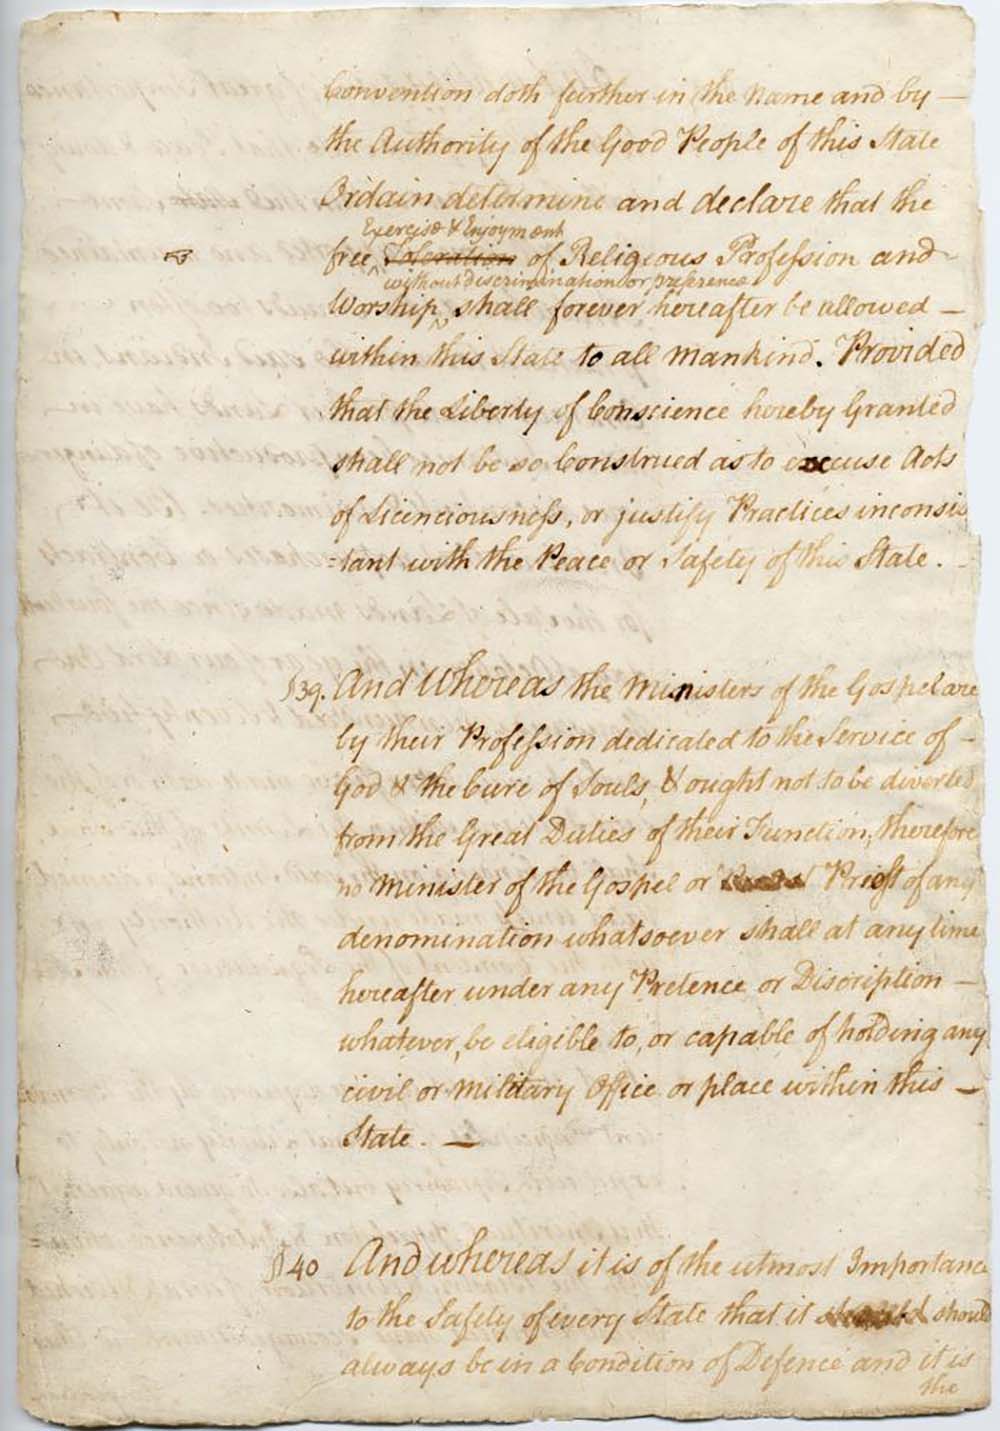 Convention doth further in the Name and by —
the Authority of the Good People of this State
Ordain determine and declare that the
Exercise & Enjoyment
free Toleration of Religious Profession and
without discrimination or preference
Worship, shall forever hereafter be allowed —
within this State to all mankind. Provided
that the Liberty of Conscience hereby Granted
shall not be so Construed as to excuse Acts
of Licenciousness, or justify Practices inconsis
=tant with the Peace or Safety of this State.
§39. And Whereas the Ministers of the Gospel are
by their Profession dedicated to the Service of —
God & the Cure of Souls, & ought not to be diverted
from the Great Duties of their Function, therefore
no Minister of the Gospel or Priest of any
denomination whatsoever shall at any time
hereafter under any Pretence or Discription —
whatever, be eligible to, or capable of holding any
civil or military Office or place within this —
State. —
§40 And whereas it is of the utmost Importance
to the Safety of every State that it should
always be in a Condition of Defence and it is
the